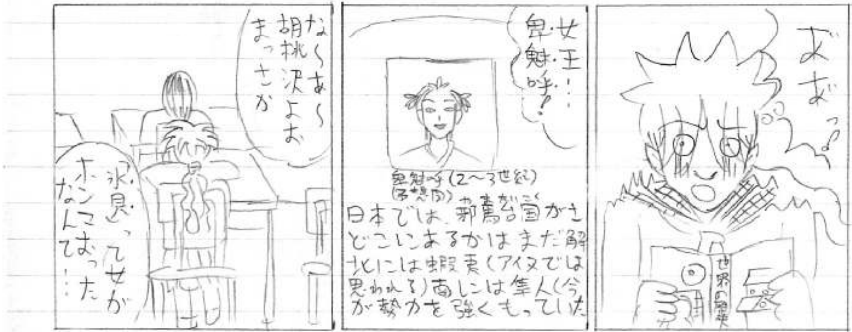 おおっ
世界の歴史
女王…
卑魅呼!
卑魅呼(2〜3世紀)
(予想図)
日本では、邪馬台国がさ
どこにあるかはまだ解
北には蝦夷(アイヌでは
思われる)南には隼人(今
が勢力を強くもっていた
な〜あ〜
胡桃沢よお
まっさか
「氷見」って女が
ホンマおった
なんて…